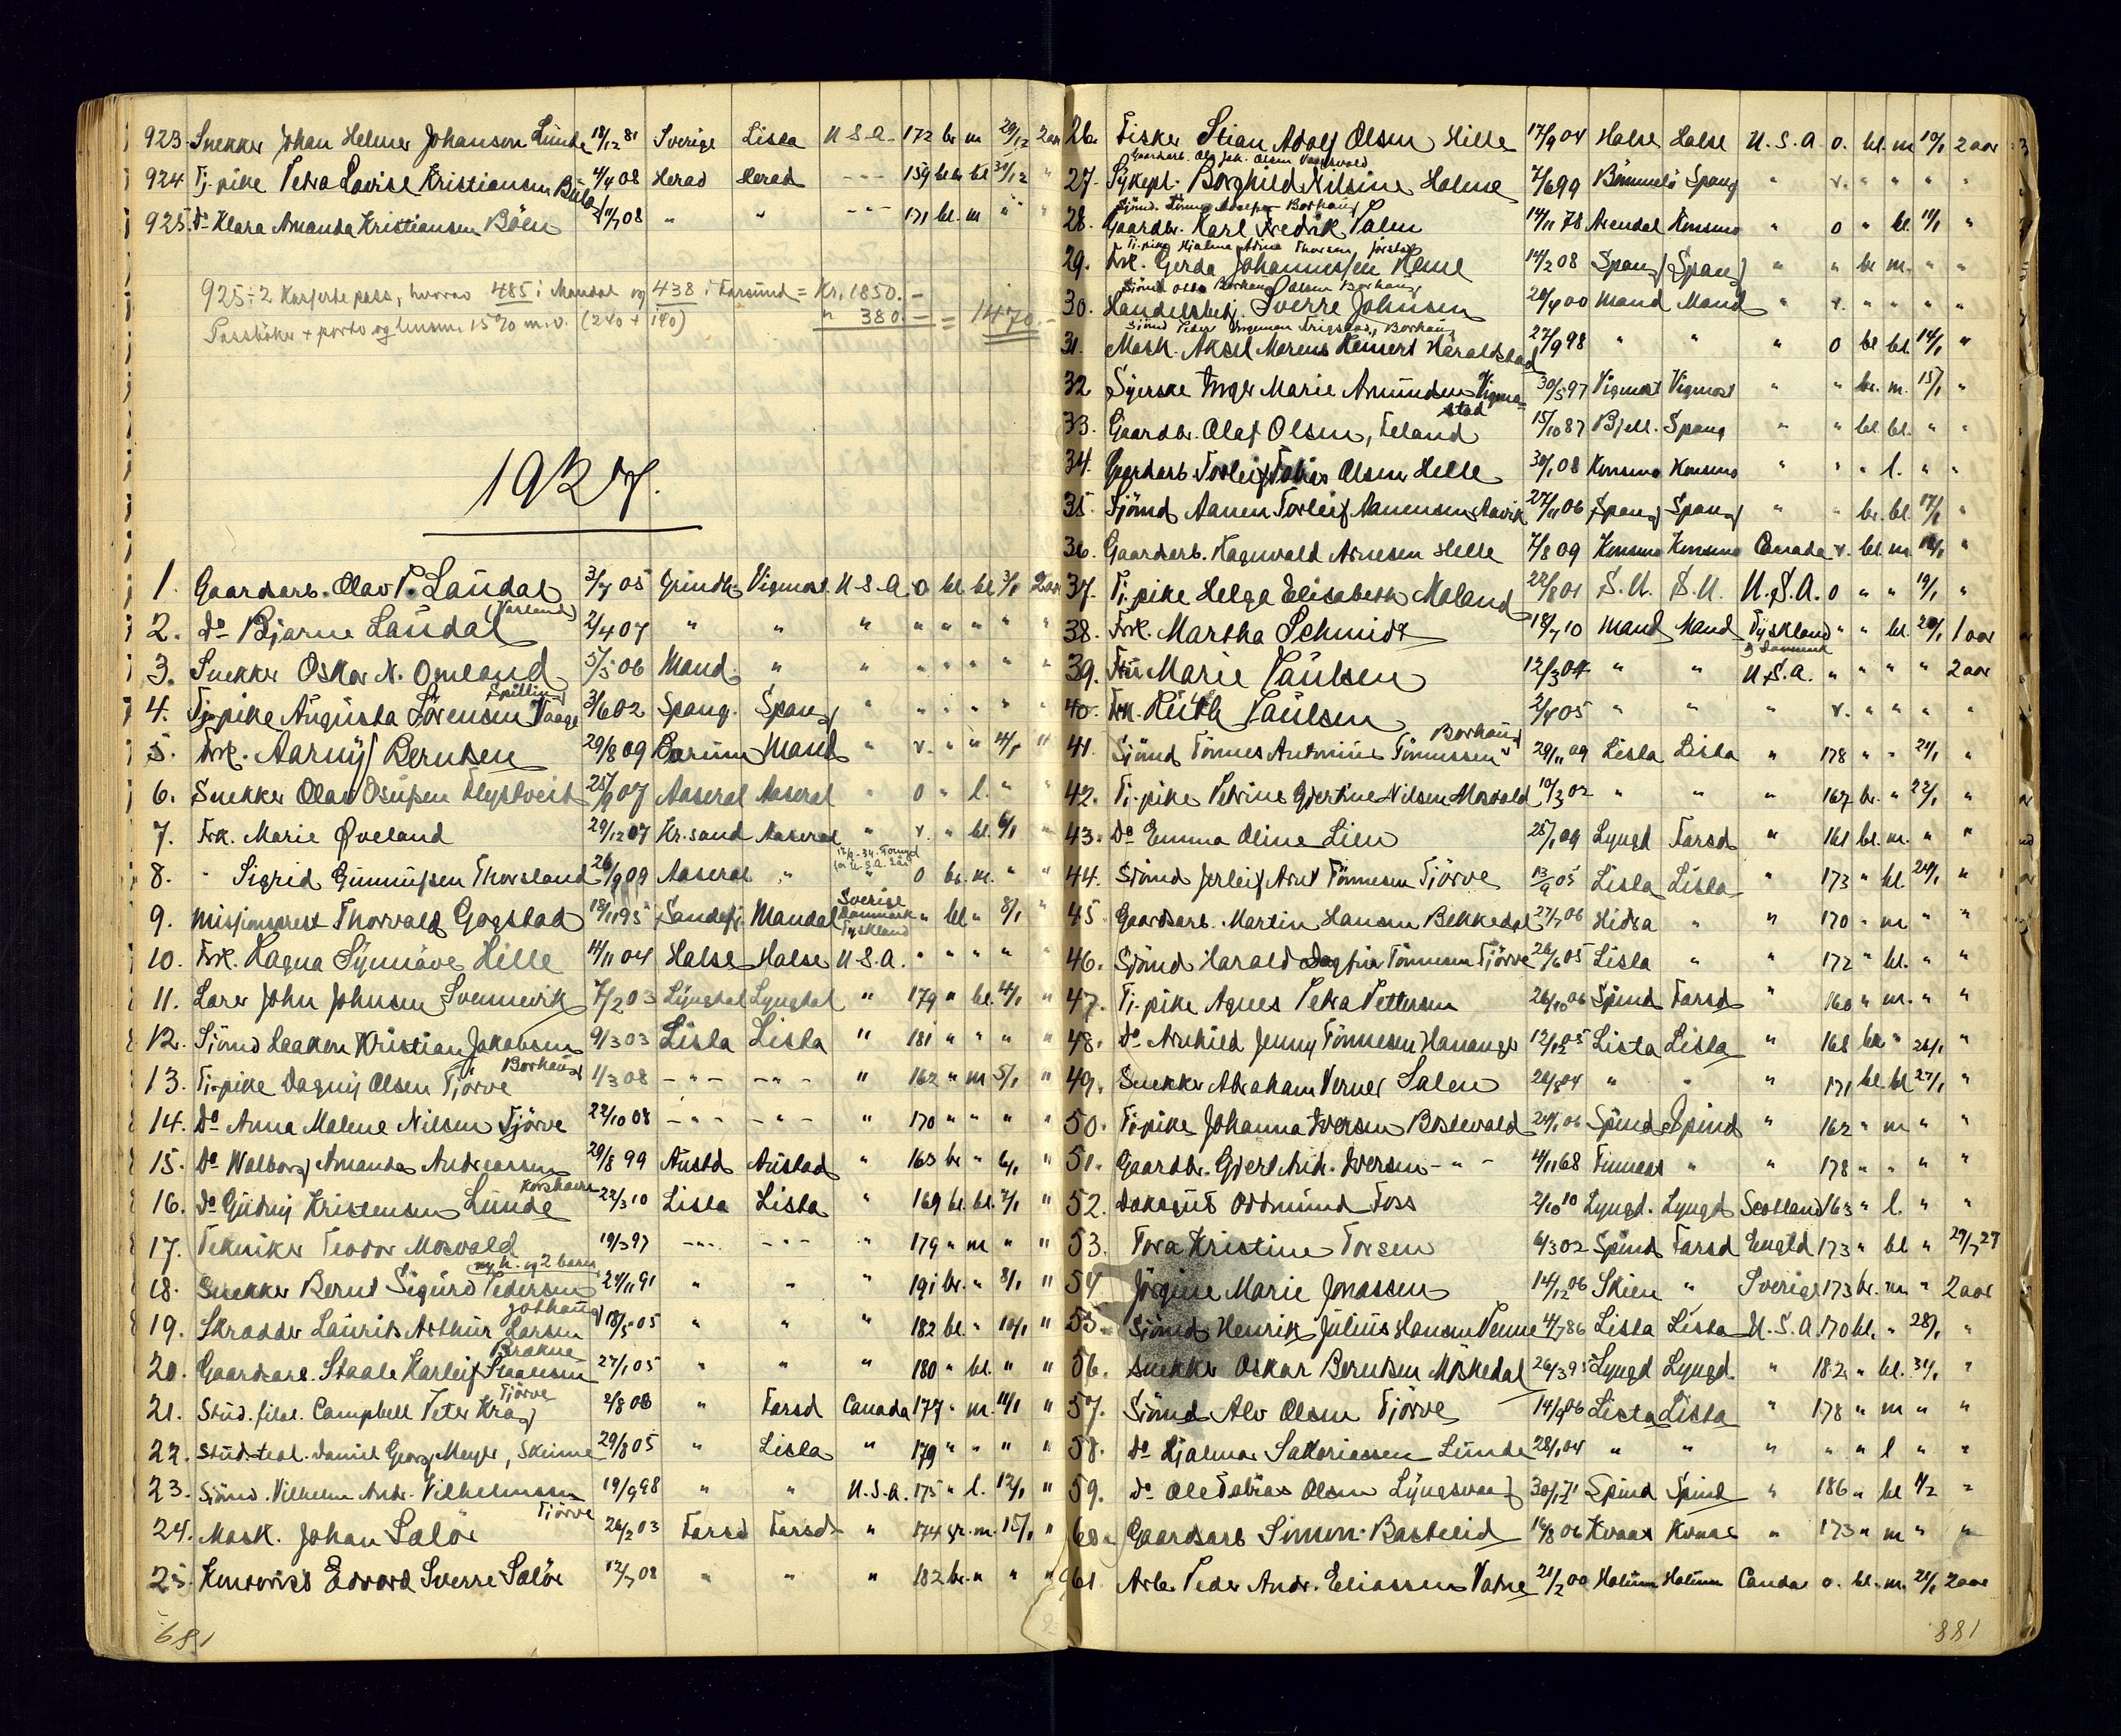 923. Snekker Johan Helmer Johanson Lunde 18/12 81 Sverige Lista U.S.A. 172 br m 29/12 2 aar
924 Tj.pike Petra Lovise Kristiansen 4/4 08 Herad Herad - - - 159 bl 30/12 "
925. Do Klara Amanda Kristiansen Böen 08 " " - " - 171 bl. m " "
925 ÷ 2 Kasserte pass, hvorav 485 i Mandal og 438 i Farsund = Kr. 1850.-
Passböker + porto og 15% m.v. (240 + 140) " 380.- = 1470.-
1927.
1. Gaardsarb. Olav P. Laudal 3/7 05 Grindh. Vigmost. U.S.A. o bl bl 3/1 2 aar
2. Do Bjarne Laudal 2/4 07 " " " " " " " "
3. Snekker Oskar N. Omland 5/5 06 Mand. " " " " " " "
4. Tj.pike Augusta Sörensen Vaage 3/6 02 Spang. Spang " " " " " "
5. Frk. Aarny Berntsen 29/8 09 Bærum Mand " v. " " 4/1 "
6. Snekker Olav 25/9 07 Aaseral Aaseral " o " l. " "
7. Frk. Marie Øveland 29/12 07 Kr.sand Aaseral " v. " bl. 6/1 "
8. " Sigrid Gunnufsen Thorsland 26/9 09 Aaseral " " o br. m. " "
9. Misjonsprest Thorvald Gogstad 18/11 95 Sandefj. Mandal Sverige Danmark Tyskland " bl " 8/1 "
10. Frk. Ragna Synnøve Hille 14/11 04 Halse Halse U.S.A. " " " " "
11. Lærer John Johnsen Svennevik 7/2 03 Lyngdal Lyngdal " 179 " bl. 4/1 "
12. Sjömd Haakon Kristian Jakobsen 9/3 03 Lista Lista " 181 " " " "
Borhaug
13. Tj.pike Dagny Olsen Tjörve 1/3 08 - " - - " - " 162 " m 5/1 "
14. Do Anna Malene Nilsen Tjörve 22/10 08 - " - - " - " 170 " " " "
15. Do Walborg Amanda Andreassen 29/8 99 Austd Austad " 163 br " 6/1 "
Korshavn
16. Do Gudny Kristensen Lunde 22/3 10 Lista Lista " 169 bl. bl. 7/1 "
17. Tekniker Teodor Mosvald 19/3 97 - " - - " - " 179 " m " "
m/h. og 2 barn
18. Snekker Bernt Sigurd Pedersen 24/11 91 " " " 191 br. " 8/1 "
19. Skrædder Laurits Arthur Larsen 18/5 05 " " " 182 bl. " 10/1 "
Brekne
20. Gaardsarb. Staale Karleif Staalesen 27/1 05 " " " 180 " bl. " "
Tjörve
21. Stud. filol. Campbell Peter Krag 2/8 08 " Farsd Canada 177 " m. 11/1 "
22. Stud. teol. Daniel Georg Meyer, Skeime 29/8 05 " Lista " 179 " " " "
23. Sjömd. Vilhelm Andr. Vilhelmsen 19/9 98 " " U.S.A. 175 " l. 12/1 "
Tjörve
24. Mask. Johan Salör 26/2 03 Farsd Farsd " 174 gr. m. 15/1 "
25. Kontorist Edvard Sverre Salör 12/7 08 " " " 182 br. " " "
681
26. Fisker Stian Adolf Olsen Hille 17/9 04 Halse Halse U.S.A. o. bl. m 10/1 2 aar
27. Sykepl. Borghild Nilsine Holme 7/6 99 Bömmelö Spang " v. " " " "
28. Gaardbr. Karl Fredrik Valen 14/11 78 Arendal Konsmo " o " bl. 11/1 "
29. Frk. Gerda Johannessen Heme 14/2 08 Spang Spang " " br m. " "
30. Handelsbetj. Sverre Johnsen 20/4 00 Mand Mand " v. " " " "
31. Mask. Aksel Marens Reinert Haraldstad 27/9 98 " " " o bl bl. 14/1 "
32 Syerske Inger Marie Amundsen Vigmostad 30/5 97 Vigmost Vigmost " " br. m. 15/1 "
33. Gaardbr. Olaf Olsen, Feland 15/10 87 Bjell. Spang " " bl bl. " "
34. Gaardsarb. Torleif Tobias Olsen Helle 30/1 08 Konsmo Konsmo " " " l. " "
35. Sjömd Aanen Torleif Aanensen Aavik 27/11 06 Spang Spang " " br. bl. 17/1 "
36. Gaardsarb. Ragnvald Arnesen Helle 7/8 09 Konsmo Konsmo Canada v. bl. m. 18/1 "
37. Tj.pike Helga Elisabeth Møland 22/8 01 S.U. S.U. U.S.A. o " " 19/1 "
38. Frk. Martha Schmidt 18/7 10 Mand Mand Tyskland " " bl. 20/1 1 aar
39. Fru Marie Paulsen 12/3 04 " " U.S.A. " " " " 2 aar
40. Frk. Ruth Paulsen 2/4 05 " " " v. " " " "
Borhaug
41. Sjömd Tönnes Antonius Tönnessen 29/11 09 Lista Lista " 178 " " 21/1 "
42. Tj.pike Petrine Gjertine Nilsen Mosvald 10/3 02 " " " 167 br. " 22/1 "
43. Do Emma Oline Lien 25/1 09 Lyngd Farsd " 161 bl. m. " "
44. Sjömd Jerleif Arnt Tönnesen Tjörve 13/9 05 Lista Lista " 173 " bl. 24/1 "
45 Gaardsarb. Martin Hansen Bekkedal 27/7 06 Hidra " " 170 " m " "
46. Sjömd Harald Dagfin Tönnesen Tjörve 26/6 05 Lista " " 172 " bl. " "
47. Tj.pike Agnes Petra Pettersen 26/10 06 Spind Farsd " 160 " m. " "
48. Do Arnhild Jenny Tönnesen Hananger 12/12 05 Lista Lista " 168 bl " 26/1 "
49. Snekker Abraham Verner Salen 26/8 04 " " " 171 bl. bl 27/1 "
50. Tj.pike Johanna Iversen Bostevald 24/1 06 Spind Spind " 162 " m " "
51. Gaardbr. Gjert Andr. Iversen - " - 4/11 68 " " 178 " " " "
52. Dæksgut Oddmund Foss 2/10 10 Lyngd. Lyngd Scotland 163 " l. " "
53. Tora Kristine Torsen 6/3 02 Spind Farsd Engld 173 " bl " 27/7 27
54 Jörgine Marie Jonassen 14/12 06 Skien " Sverige 173 br. m " 2 aar
55. Sjömd Henrik Julius Hansen Venne 4/7 86 Lista Lista U.S.A. 170 bl. " 28/1 "
56. Snekker Oskar Berntsen Möskedal 26/3 95 Lyngd Lyngd. " 182 " bl. 31/1 "
57. Sjömd Alv Olsen Tjörve 14/6 06 Lista Lista " 178 " m " "
58. Do Hjalmar Sakariassen Lunde 28/1 04 " " " " " l " "
59. Do Ole Tobias Olsen Lyngsvaag 30/12 71 Spind Spind " 186 " bl 1/2 "
60. Gaardsarb Simon Bastelid 16/8 06 Kvaas Kvaas " 173 " m " "
61 Arb. Peder Andr. Eliassen Valne 21/2 00 Holum Holum Canda o. bl. m. 21/1 2 aar
881